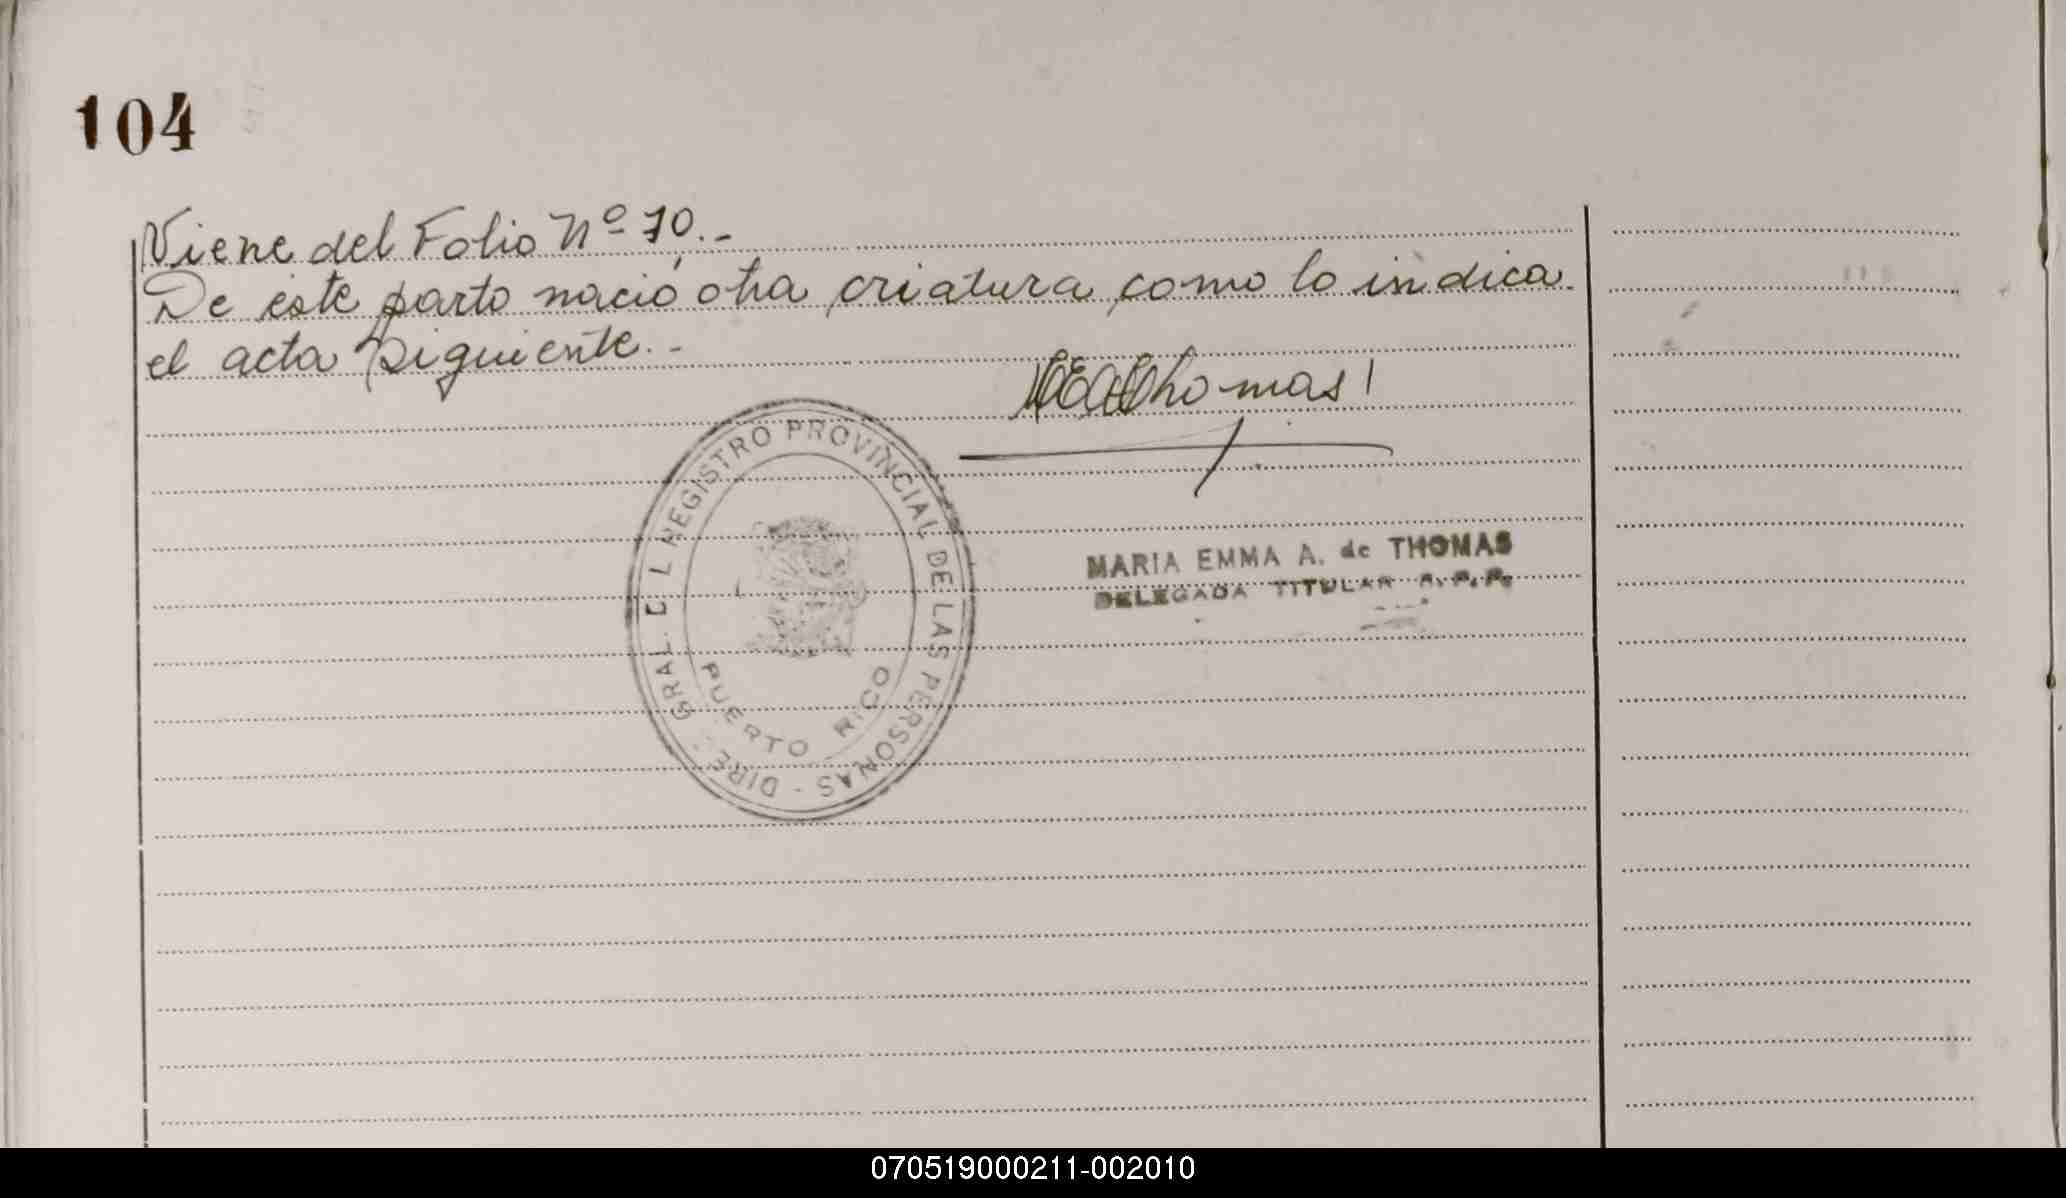 104
Viene del Folio Nº 70.-
De este parto nació otra criatura como lo indica
el acta siguiente.-
MEAThomas
DIRE. GRAL. DEL REGISTRO PROVINCIAL DE LAS PERSONAS -
PUERTO RICO
MARIA EMMA A. de THOMAS
DELEGADA TITULAR R.P.P.
070519000211-002010